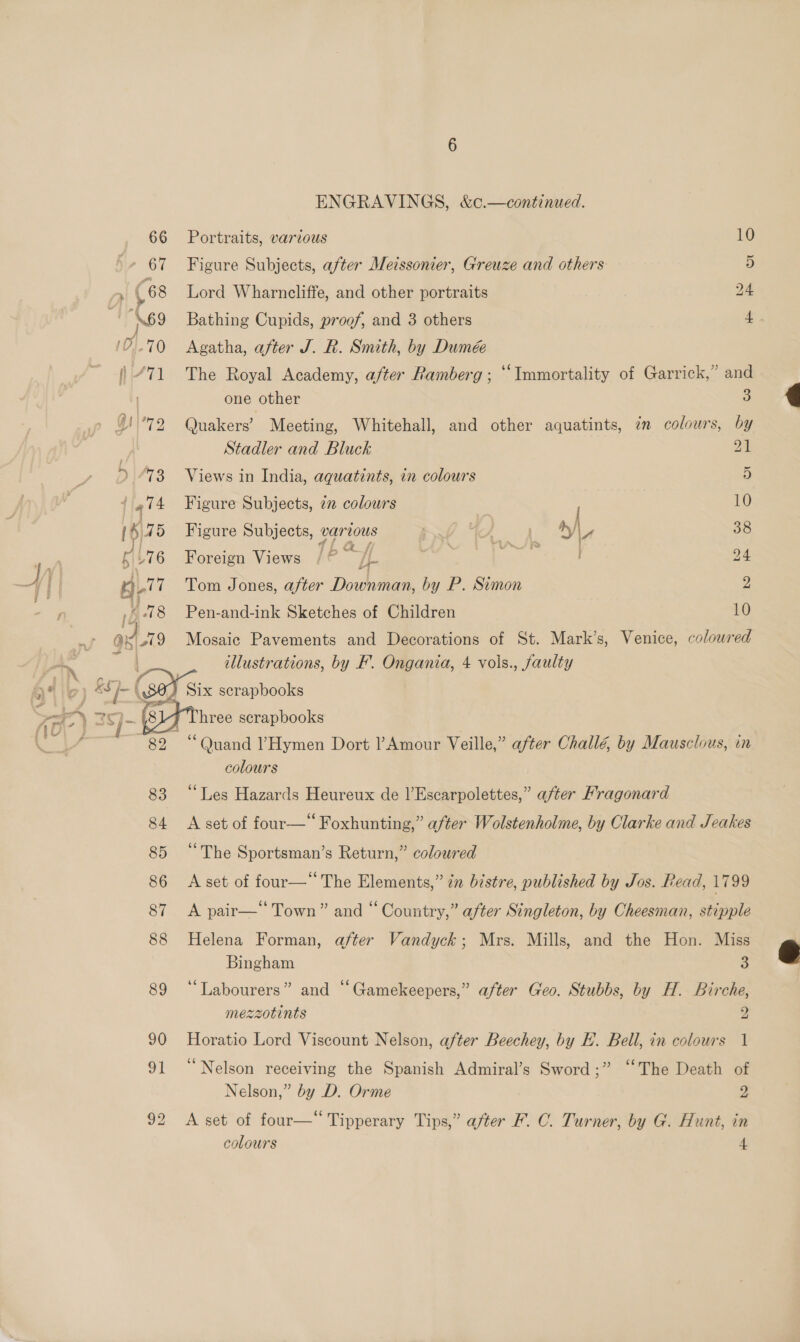 6
ENGRAVINGS, &c.—continued.
66 Portraits, various 10
67 Figure Subjects, after Meissonier, Greuze and others 5
68 Lord Wharncliffe, and other portraits 24
69 Bathing Cupids, proof, and 3 others 4
70 Agatha, after J. R. Smith, by Dumée
71 The Royal Academy, after Ramberg; “Immortality of Garrick,” and
one other 3
72 Quakers’ Meeting, Whitehall, and other aquatints, in colours, by
Stadler and Bluck 21
73 Views in India, aquatints, in colours 5
74 Figure Subjects, in colours 10
75 Figure Subjects, various 38
76 Foreign Views 24
77 Tom Jones, after Downman, by P. Simon 2
78 Pen-and-ink Sketches of Children 10
79 Mosaic Pavements and Decorations of St. Mark’s, Venice, coloured
illustrations, by F. Ongania, 4 vols., faulty
80 Six scrapbooks
81 Three scrapbooks
82 “Quand l’Hymen Dort l’Amour Veille,” after Challé, by Mausclous, in
colours
83 “Les Hazards Heureux de l’Escarpolettes,” after Fragonard
84 A set of four—“Foxhunting,” after Wolstenholme, by Clarke and Jeakes
85 “The Sportsman’s Return,” coloured
86 A set of four—“The Elements,” in bistre, published by Jos. Read, 1799
87 A pair—“Town” and “Country,” after Singleton, by Cheesman, stipple
88 Helena Forman, after Vandyck; Mrs. Mills, and the Hon. Miss
Bingham 3
89 “Labourers” and “Gamekeepers,” after Geo. Stubbs, by H. Birche,
mezzotints 2
90 Horatio Lord Viscount Nelson, after Beechey, by E. Bell, in colours 1
91 “Nelson receiving the Spanish Admiral’s Sword;” “The Death of
Nelson,” by D. Orme 2
92 A set of four—“Tipperary Tips,” after F. C. Turner, by G. Hunt, in
colours 4